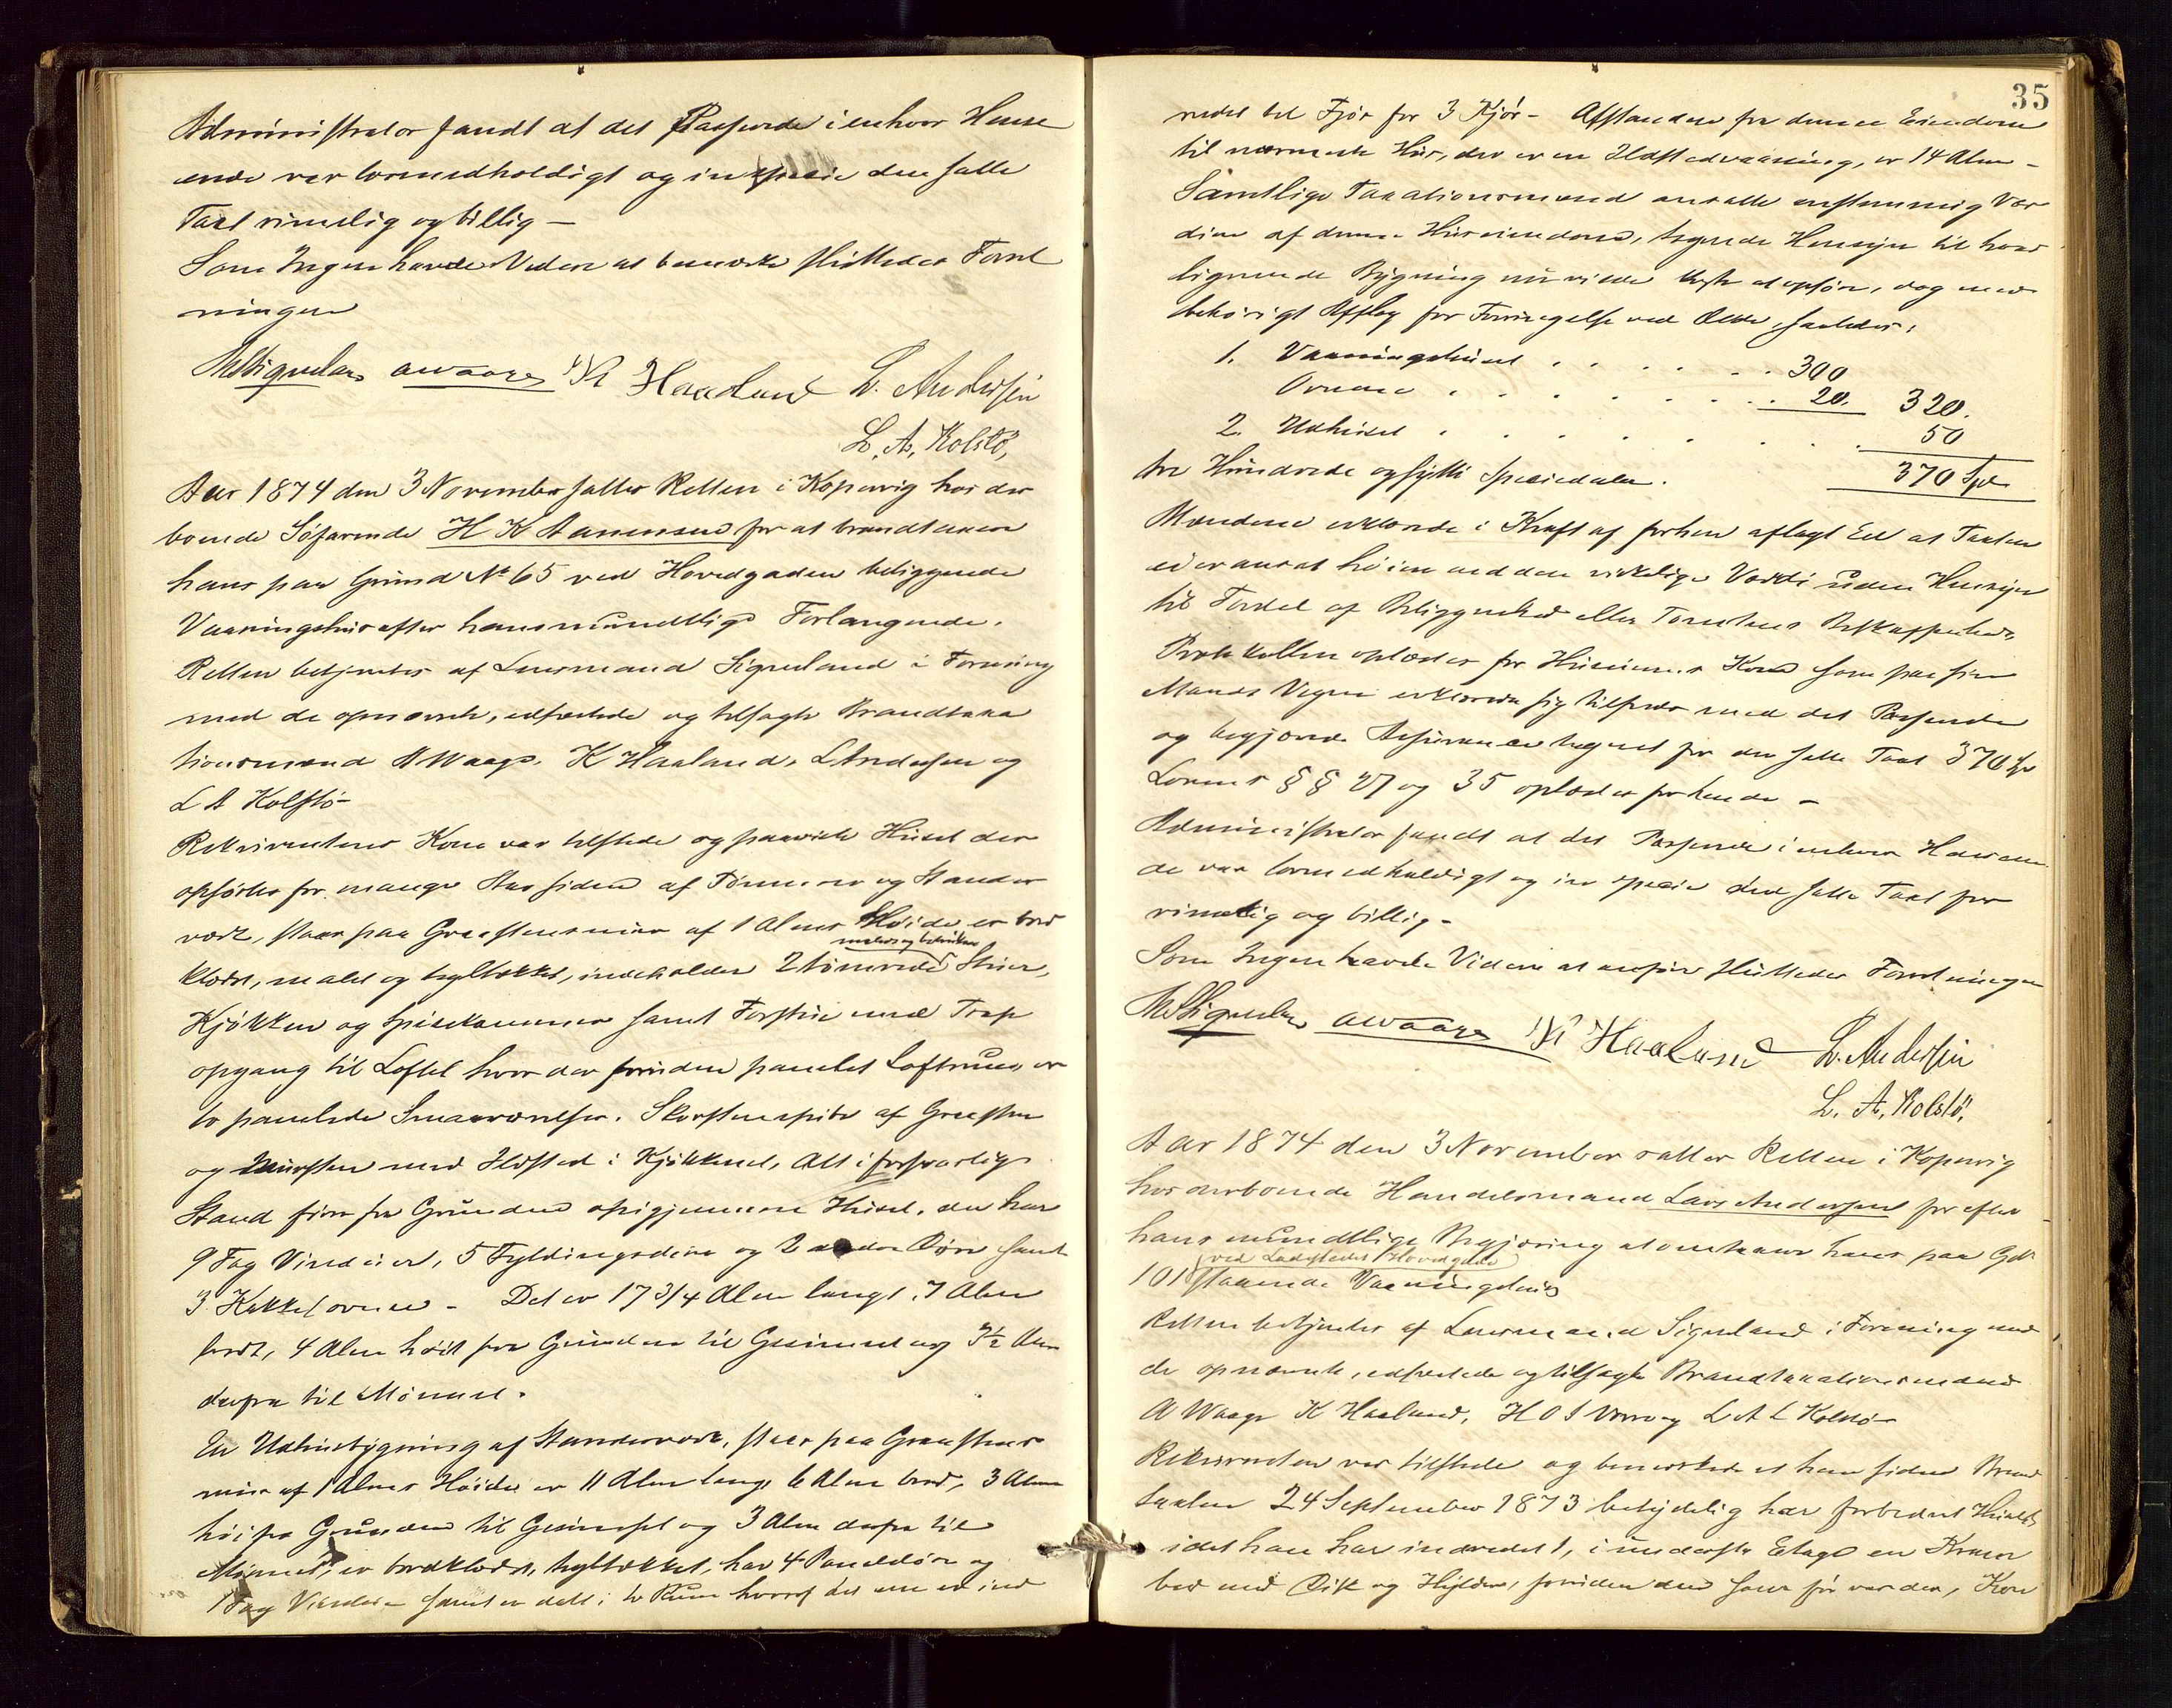 Administrator fandt at det Passerede i enhver Hense
ende var lovmedholdigt og in specie den satte
Taxt rimelig og billig —
Som Ingen havde Videre at bemærke sluttedes Forret
ningen
M Sigueland AWaage K Haaland L. Andersen
L. A. Kolstö,
Aar 1874 den 3 November sattes Retten i Kopervig hos der
boende Søfarende H K Aanensen for at brandtaxere
hans paa Grund No 65 ved Hovedgaden beliggende
Vaaningshus efter hans mundtlige Forlangende.
Retten betjentes af Lensmand Sigueland i Forening
med de opnævnte, edfæstede og tilsagte Brandtaxa
tionsmænd A Waage, K Haaland, L Andersen og
L A Kolstø —
Rekvirentens Kone var tilstede og paaviste Huset der
opførtes for mange Aar siden af Tømmer og Stander
værk, staar paa Graastensmuur af 1 Alens Høide er bord
malede og betrukne
klædt, malet og tegltækket, indeholder 2 tømrede Stuer,
Kjøkken og Spisekammer samt Forstue med Trap
opgang til Loftet hvor der foruden panelet Loftrum er
to panelede Smaaværelser. Skorstenspibe af Graasten
og Mursten med Ildsted i Kjøkkenet, Alt i forsvarlig
Stand fra Grunden opigjennem Huset, der har
9 Fag Vinduer, 5 Fyldingsdøre og 2 andre Døre samt
3 Kakkelovne — Det er 17 3/4 Alen langt, 7 Alen
bredt, 4 Alen høit fra Grunden til Gesimset og 3½ Alen
derfra til Mønnet.
En Udhusbygning af Standerværk, staar paa Graastens
muur af 1 Alens Høide er 11 Alen lang, 6 Alen bred, 3 Alen
høi fra Grunden til Gesimset og 3 Alen derfra til
Mønnet, er bordklædt, tegltækket, har 4 Paneldøre og
1 Fag Vinduer samt er delt i to Rum hvoraf det ene er ind
35
redet til Fjøs for 3 Kjør — Afstanden fra denne Eiendom
til nærmeste Hus, der er en Ildstedvaaning, er 14 Alen —
Samtlige Taxationsmænd ansatte enstemmig Vær
dien af denne Huseiendom, tagende Hensyn til hvad
lignende Bygning nu vilde koste at opføre, dog med
behørigt Afslag for Forringelse ved Ælde, saaledes,
1. Vaaningshuset . . . . . . 300
Ovnene . . . . . . . . 20. 320.
2. Udhuset . . . . . . . . 50
tre Hundrede og sytti Speciedaler. 370 Spd
Mændene erklærede i Kraft af forhen aflagt Ed at Taxten
ei er ansat høiere end den virkelige Værdi uden Hensyn
til Fordel af Beliggenhed eller Tomtens Beskaffenhed.
Protokollen oplæstes for Huseierens Kone som paa sin
Mands Vegne erklærede sig tilfreds med det Passerede
og begjærede Assurance tegnet for den satte Taxt 370 Spd
Lovens § § 27 og 35 oplæstes for hende —
Administrator fandt at det Passerede i enhver Henseen
de var lovmedholdigt og in specie den satte Taxt for
rimelig og billig —
Som Ingen havde Videre at anføre sluttedes Forretningen
M Sigueland AWaage K Haaland L. Andersen
L. A. Kolstö,
Aar 1874 den 3 November sattes Retten i Kopervig
hos derboende Handelsmand Lars Andersen for efter
hans mundtlige Begjæring at omtaxere hans paa Gd.
ved Ladestedets Hovedgade
101 staaende Vaaningshus
Retten betjentes af Lensmand Sigueland i Forening med
de opnævnte, edfæstede og tilsagte Brandtaxationsmænd
A Waage K Haaland, H O S Vorre og L A L Kolstø —
Rekvirenten var tilstede og bemærkede at han siden Brand
taxten 24 September 1873 betydelig har forbedret Huset
idet han har indredet, i underste Etage en Kram
bod med Disk og Hylder, foruden den som før var der, Kon